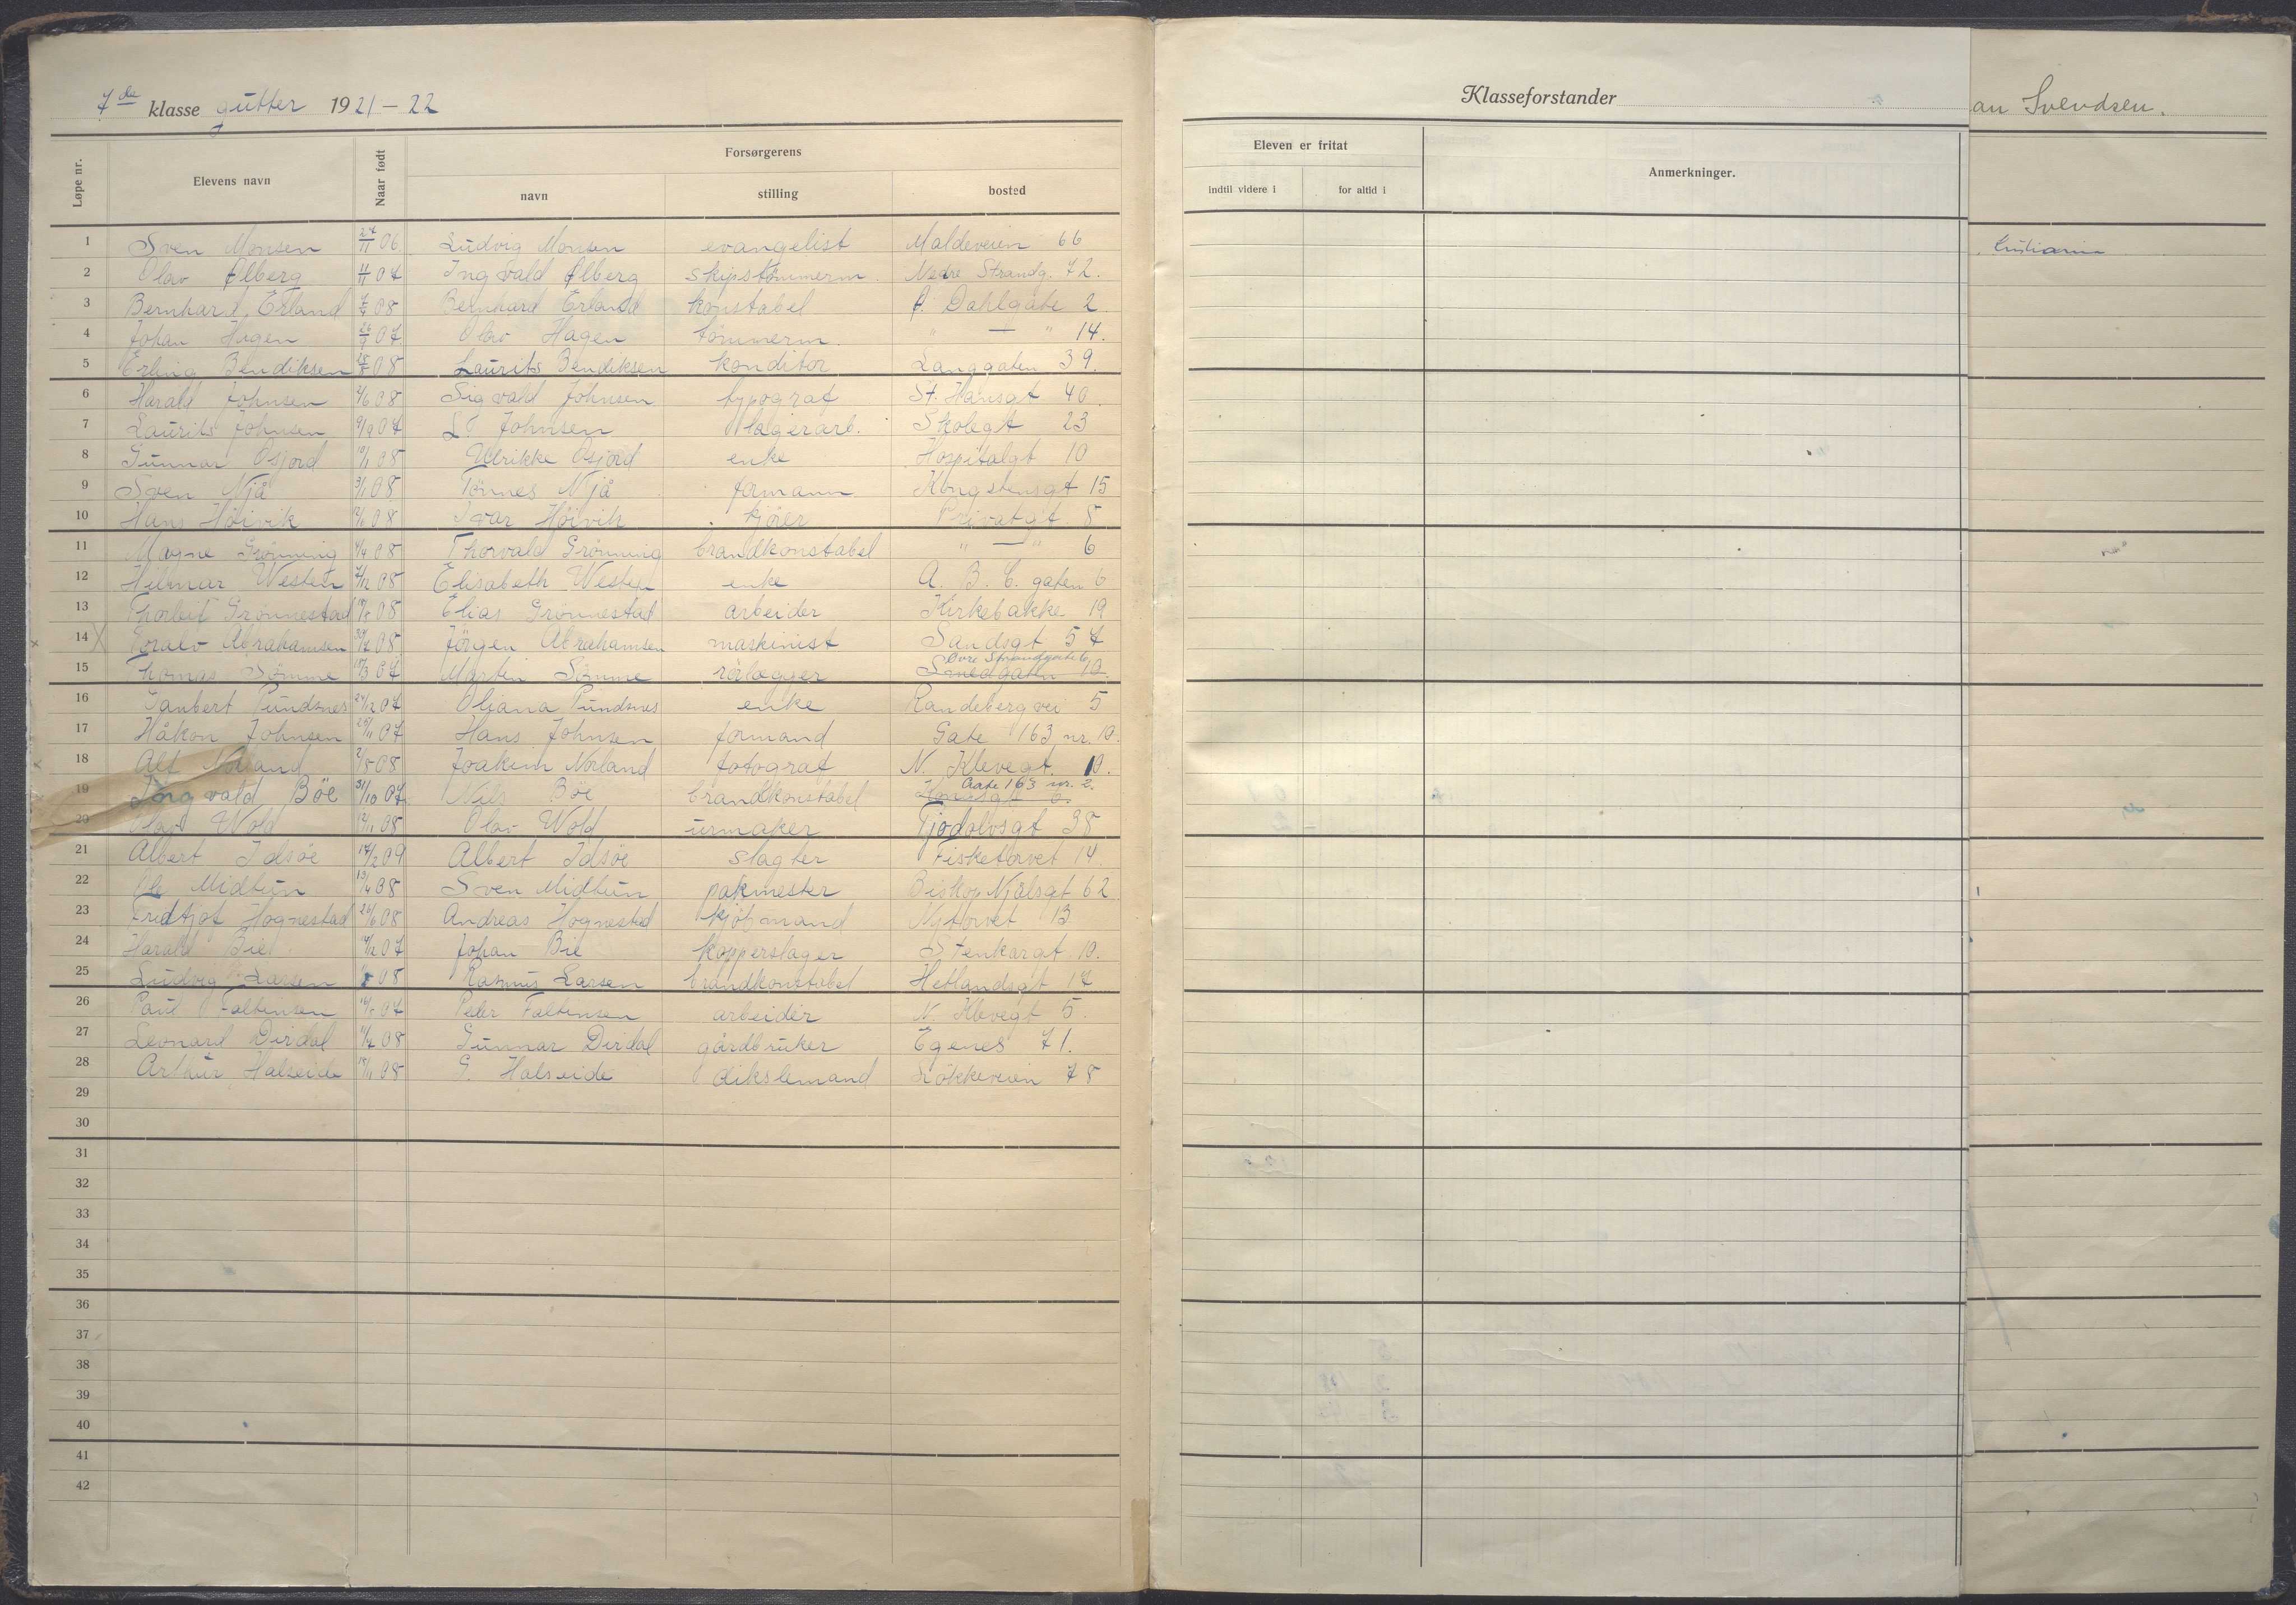 7de klasse gutter 1921-22
Klasseforstander
an Svendsen.
Løpe nr. Elevens navn Naar født Forsørgerens
navn stilling bosted
Eleven er fritat
indtil videre i for altid i
Anmerkninger.
1 Sven Monsen 06 Ludvig Monsen evangelist Maldeveien 66
2 Olav Ølberg 07 Ingvald Ølberg skipstømmerm. Nedre Strandg. 72.
3 Bernhard Erland 08 Bernhard Erland konstabel Dahlgate 2
4 Johan Hagen 07 Olav Hagen tømmerm. " — " 14.
5 Erling Bendiksen 08 Laurits Bendiksen konditor Langgaten 39.
6 Harald Johnsen 2/6 08 Sigvald Johnsen typograf St. Hansgt 40
7 Laurits Johnsen 9/9 07 Johnsen lagerarb. Skolegt 23
8 Gunnar Osjord 10/1 08 Ulrikke Osjord enke Hospitalgt 10
9 Sven Njå 3/1 08 Tönnes Njå formann Kongstensgt 15
10 Hans Höivik 08 Ivar Höivik kjører Privatgt. 8
11 Magne Grönning 08 Thorvald Grönning brandkonstabel " — " 6
12 Hilmar Westen 08 Elisabeth Westen enke A. B. C. gaten 6
13 Grönnestad 08 Elias Grönnestad arbeider Kirkebakke 19
14 Toralv Abrahamsen 08 Jörgen Abrahamsen maskinist Sandsgt 57
15 Thomas Sömme 07 Martin Sömme rörlægger Smedgaten 10 Övre Strandgate 6
16 Tanbert Tundsnes 24/12 07 Oliana Tundsnes enke Randebergvei 5
17 Håkon Johnsen 07 Hans Johnsen formand Gate 163 nr. 10.
18 Alf Norland 08 Joakim Norland fotograf N. Klevegt. 10.
19 Ingvald Böe 31/10 07 Nils Böe brandkonstabel Gate 163 nr. 2.
20 Olav Wold 12/11 08 Olav Wold urmaker Tjodolvsgt 38
21 Albert Idsöe 17/2 09 Albert Idsöe slagter Fisketorvet 14.
22 Ole Midtun 13/4 08 Sven Midtun pakmester Biskop Njælsgt 62
23 Fridtjof Hognestad 26/6 08 Andreas Hognestad kjöpmand Nytorvet 13
24 Harald Bie 07 Johan Bie kopperslager Stenkargt 10.
25 Ludvig Larsen 08 Rasmus Larsen brandkonstabel Hetlandsgt 17
26 Paul Faltinsen 07 Peder Faltinsen arbeider N. Klevegt 5.
27 Leonard Dirdal 08 Gunnar Dirdal gårdbruker Egenes 71.
28 Arthur Halseide 08 G. Halseide dikslemand Stökkeveien 78
29
30
31
32
33
34
35
36
37
38
39
40
41
42